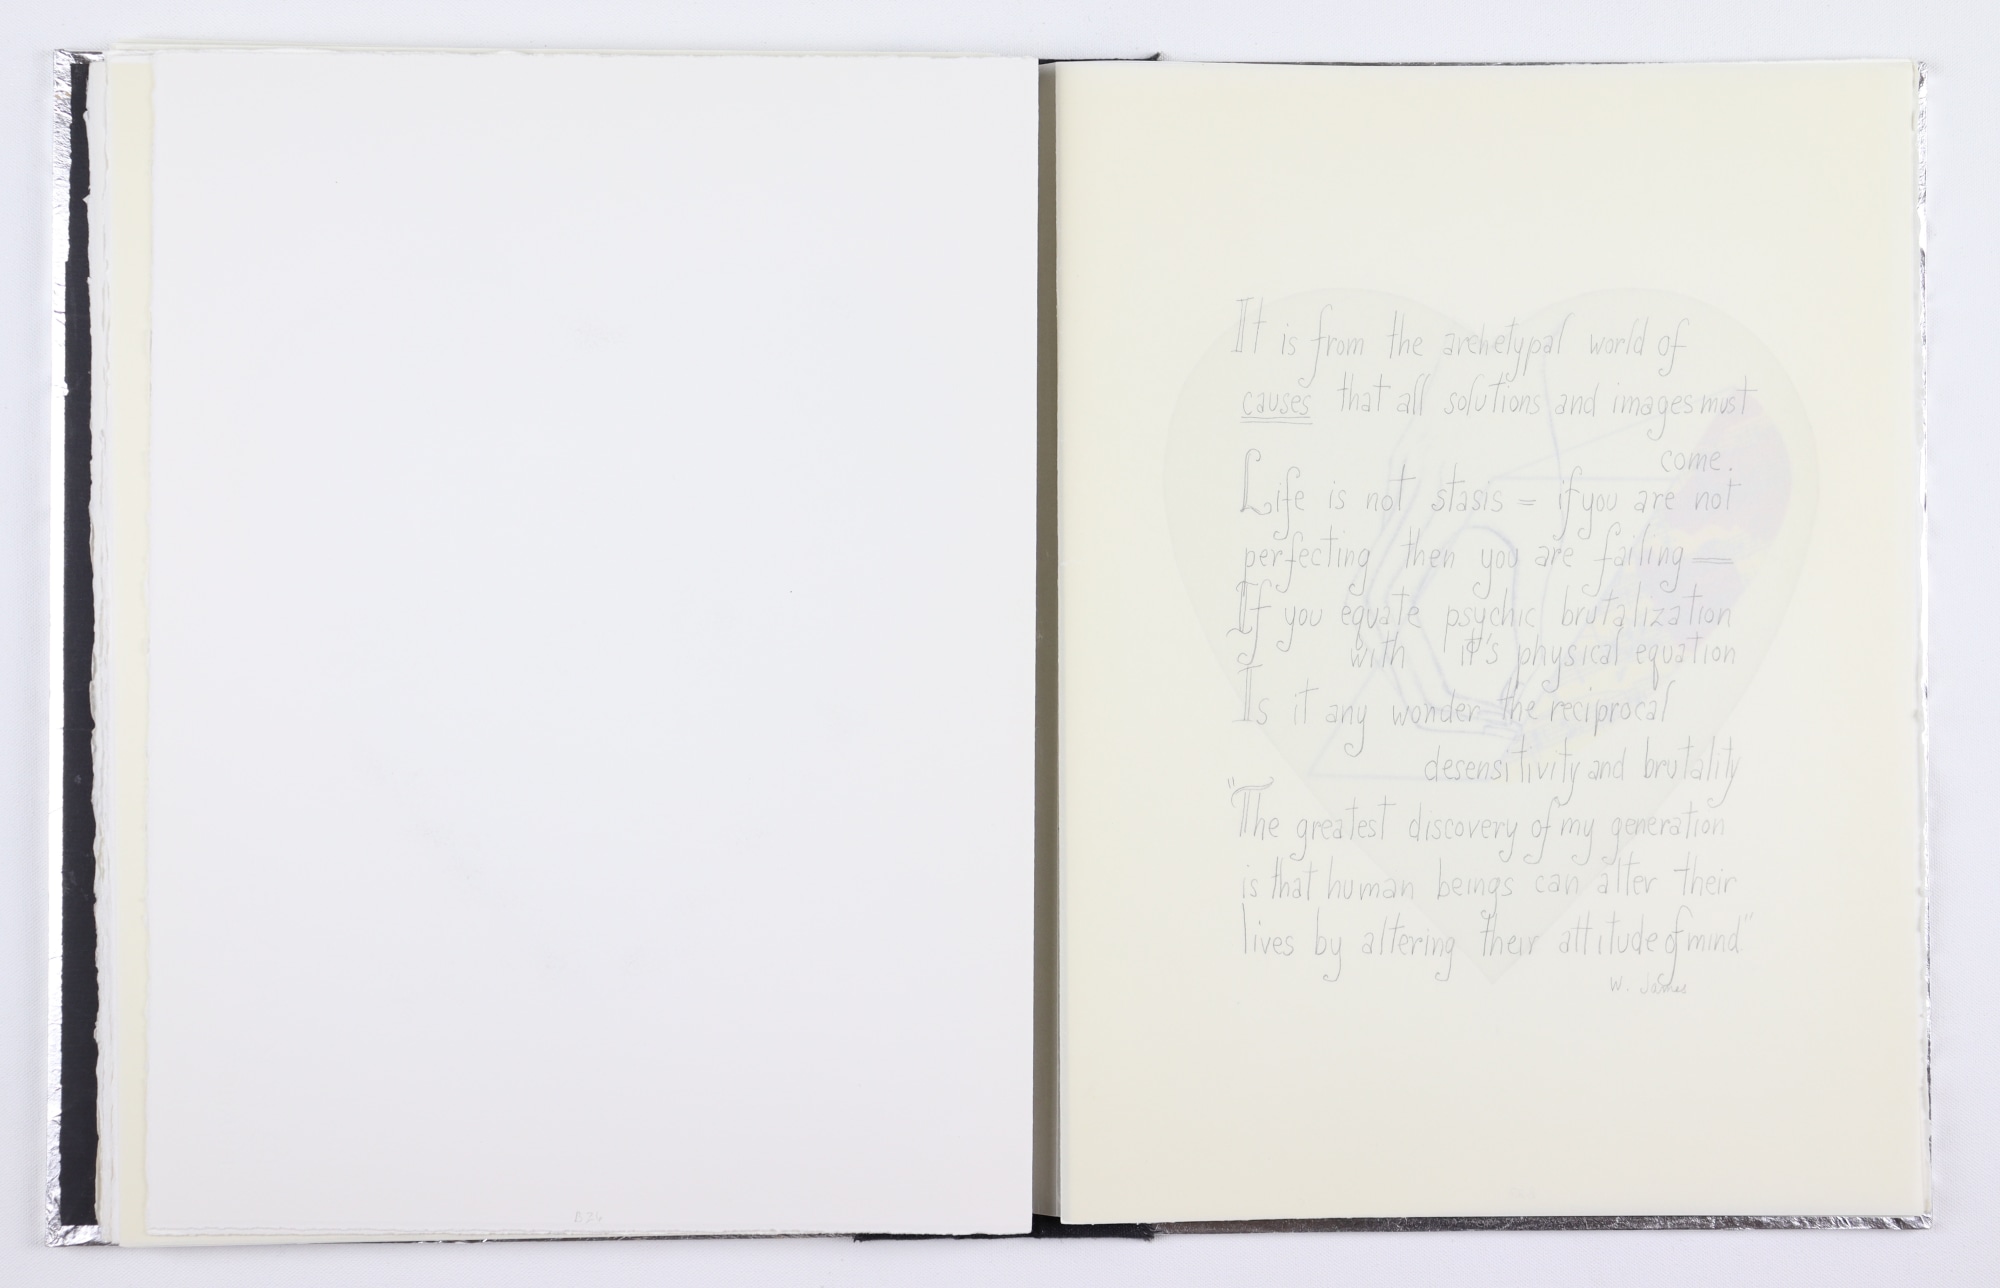 It is from the archetypal world of
causes that all solutions and images must
come.
Life is not stasis = if you are not
perfecting then you are failing =
If you equate psychic brutalization
with it's physical equation
Is it any wonder the reciprocal
desensitivity and brutality
"The greatest discovery of my generation
is that human beings can alter their
lives by altering their attitude of mind"
W. James